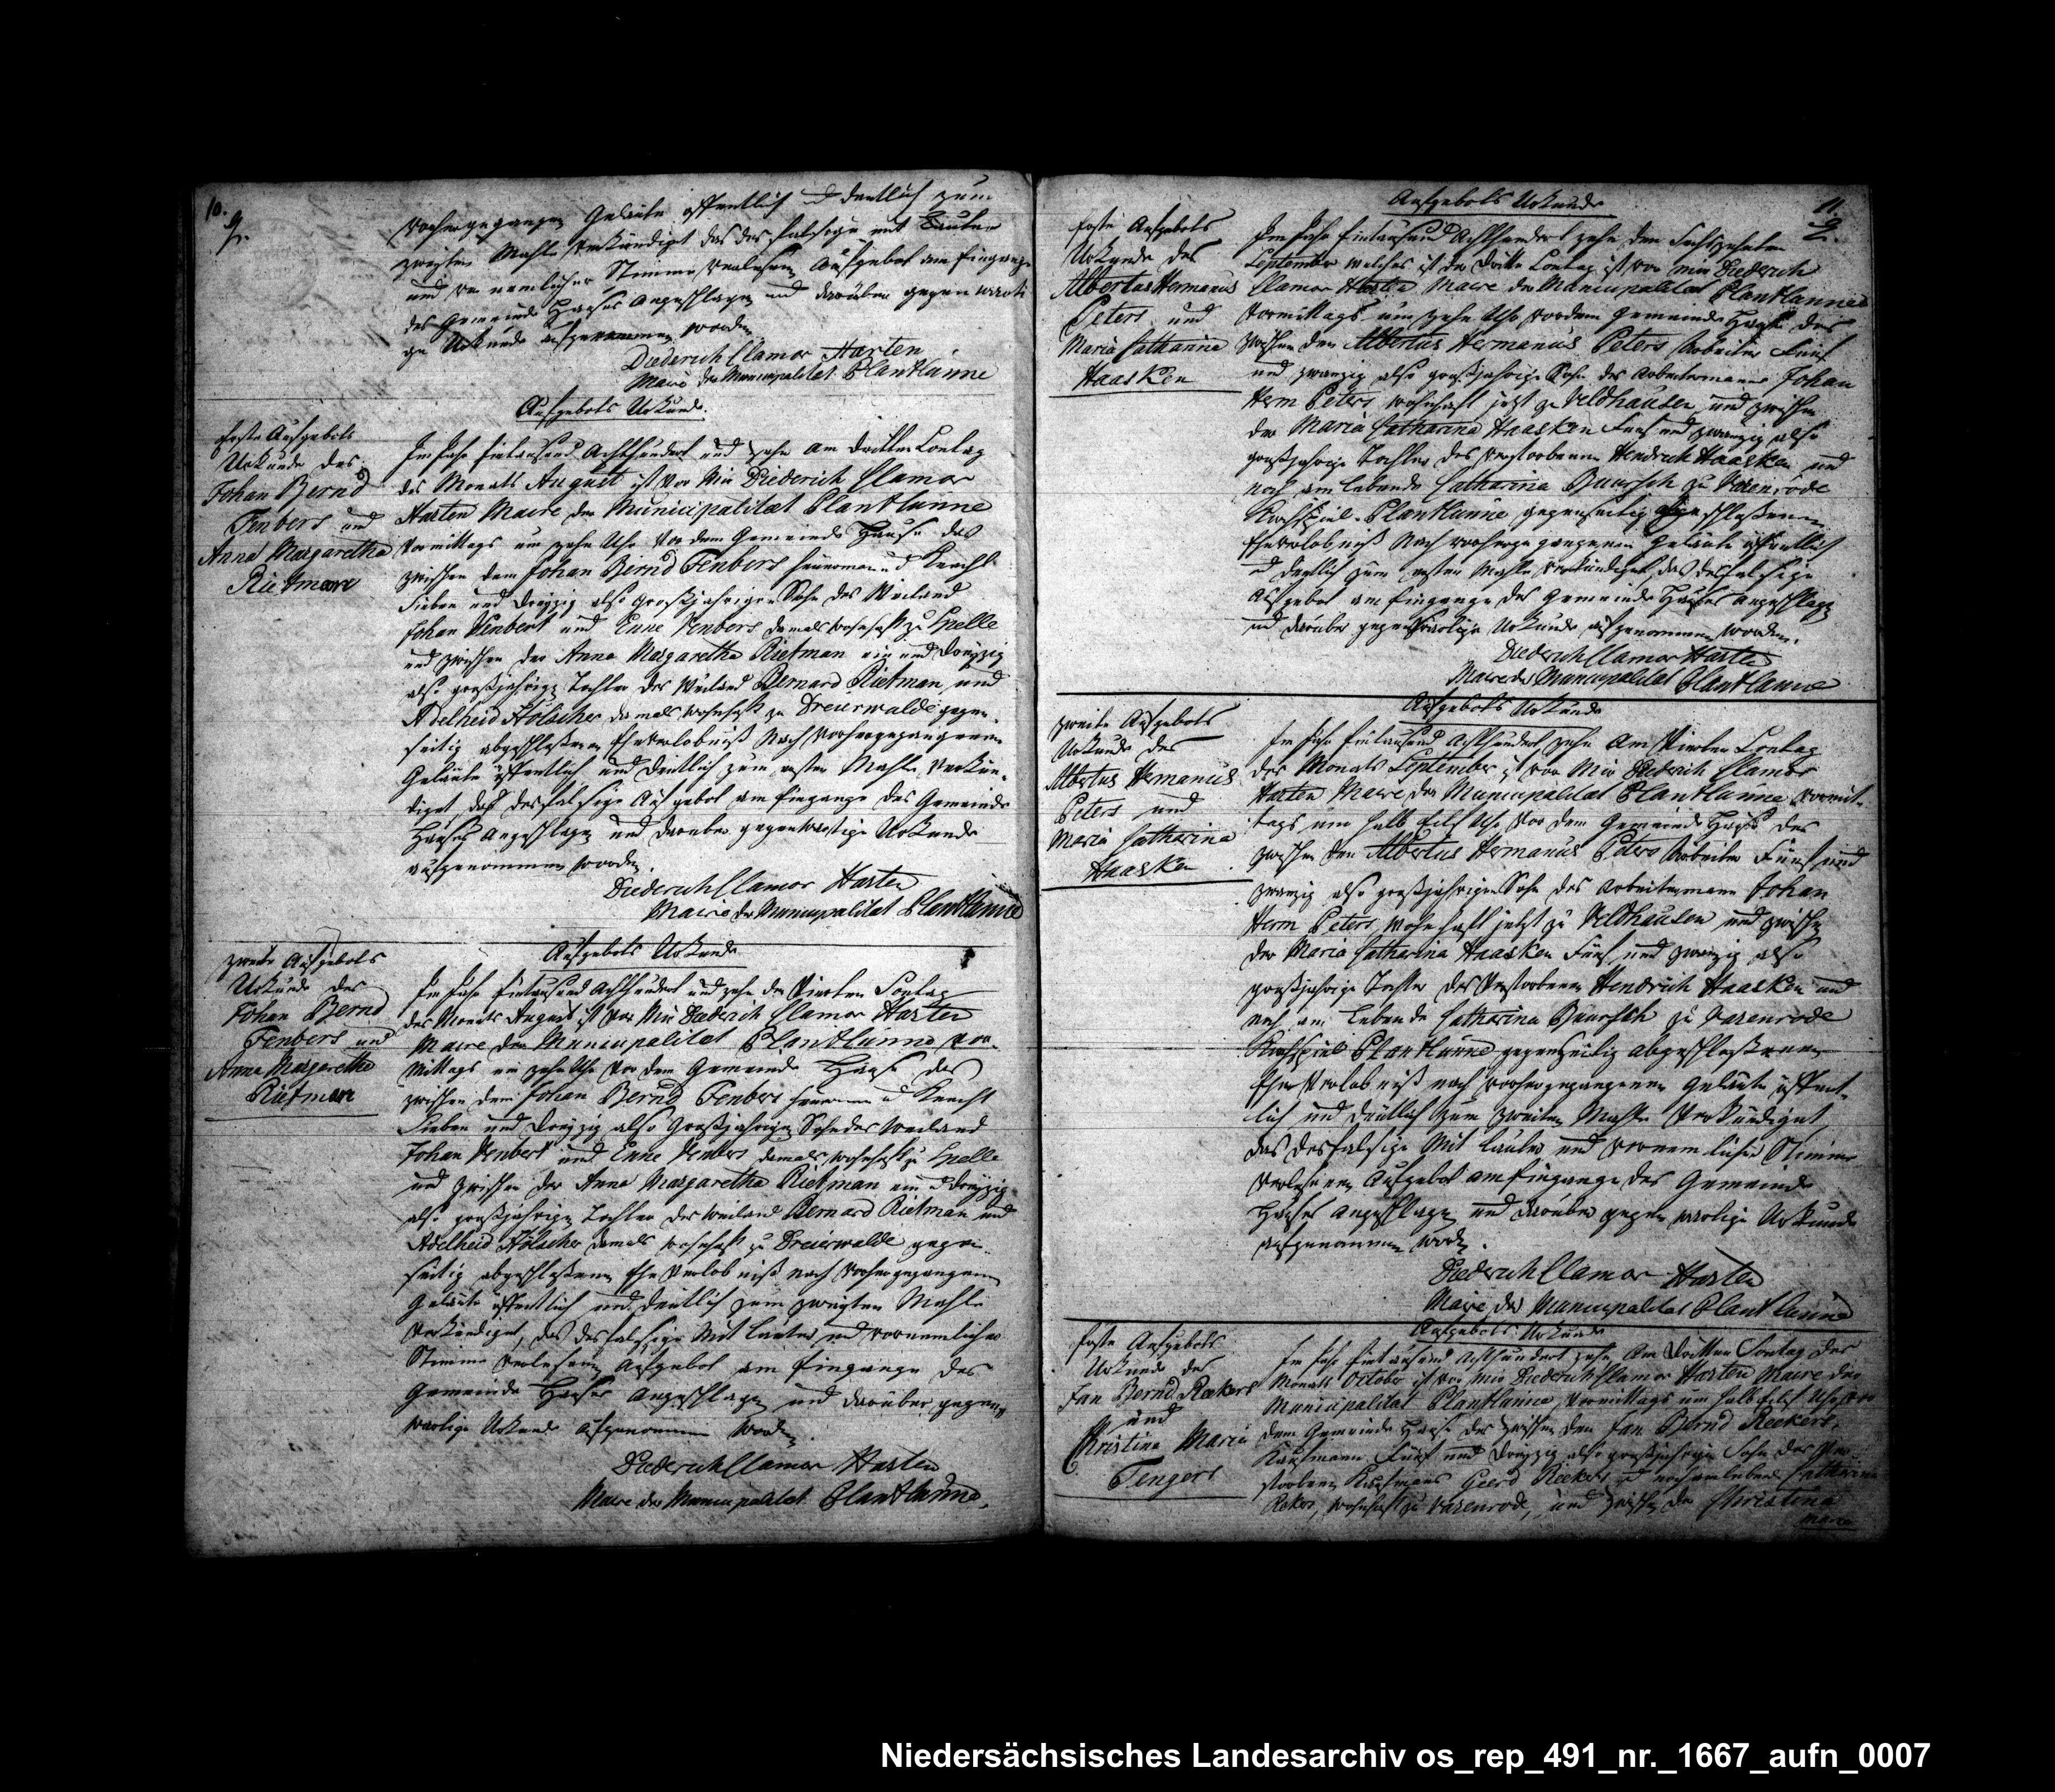 10.
vorhergegangen Geläute öffentlich und deutlich zum
zweyten Mahle verkündiget das desfalsige mit lauter
und vernemlicher Stimme verlesene Aufgebot am Eingange
des Gemeinde Hauses angeschlagen und darüber gegenwärti
ge Urkunde aufgenommen worden
Diederich Clamor Harten
Maire der Municipalitat Plantlünne
Aufgebots Urkunde.
Erste Aufgebots
Urkunde des
Johan Bernd
Fenbers und
Anna Margaretha
Rietman
Im Jahr Eintausend Achthundert und zehn am dritten Sontag
des Monats August ist vor Mir Diederich Clamor
Harten Maire der Municipalitat Plantlünne
Vormittags um zehn Uhr vor dem Gemeinde Hause das
zwischen dem Johan Bernd Fenbers Heuerman und Knecht
Sieben und dreyzig also großjahrigen Sohn des Weiland
Johan Venbert und Enne Venbers damals wohnhaft zu Spelle
und zwischen der Anna Margaretha Rietman ein und dreyzig
also großjahrige Tochter des Weiland Bernard Rietman und
Adelheid Hölscher damals wohnhaft zu Dreierwalde gegen-
seitig abgeschloßenen Eheverlobniß Nach vorhergegangenem
Geläute öffentlich und deutlich zum ersten Mahle verkün-
diget das desfalsige Aufgebot am Eingange des Gemeinde
Hauses angeschlagen und darüber gegenwartige Urkunde
aufgenommen worden.
Diederich Clamor Harten
Maire der Municipalitat Plantlünne
Aufgebots Urkunde
zweite Aufgebots
Urkunde des
Johan Bernd
Fenbers und
Anna Margaretha
Rietman
Im Jahr Eintausend Achthundert und zehn den Vierten Sontag
des Monats August ist vor Mir Diederich Clamor Harten
Maire der Municipalitat Plantlünne vor-
Mittags um zehn Uhr vor dem Gemeinde Hause das
zwischen dem Johan Bernd Fenbers Heuerman und Knecht
Sieben und dreyzig also Großjahrigen Sohn des Weiland
Johan Venbert und Enne Venbers damals wohnhaft zu Spelle
und zwischen der Anna Margaretha Rietman ein und dreyzig
also großjahrige Tochter des Weiland Bernard Rietman und
Adelheid Hölscher damals wohnhaft zu Dreierwalde gegen-
seitig abgeschloßenen Ehe Verlobniß nach vorhergegangenem
Geläute öffentlich und deutlich zum zweyten Mahle
Verkündiget, das desfalsige Mit lauter und vernemlicher
Stimme verlesene Aufgebot am Eingange des
Gemeinde Hauses angeschlagen und darüber gegen-
wartige Urkunde aufgenommen worden.
Diederich Clamor Harten
Maire der Municipalitat Plantlünne.
11.
Aufgebots Urkunde
Erste Aufgebots
Urkunde des
Albertus Hermanus
Peters und
Maria Catharina
Haasken
Im Jahr Eintausend Achthundert zehn den Sechszehnten
September welches ist der dritte Sontag ist vor mir Diederich
Clamor Harten Maire der Municipalitat Plantlünne
Vormittags um zehn Uhr vor dem Gemeinde Hause das
zwischen den Albertus Hermanus Peters Arbeiter Fünf
und zwanzig also großjahrige Sohn des Arbeitermans Johan
Herm Peters wohnhaft jetzt zu Veldhausen und zwischen
der Maria Catharina Haasken Fünf und zwanzig also
großjahrige Tochter des verstorbenen Hendrich Haasken und
noch am lebende Catharina Buursch zu Varenrode
Kirchspiel Plantlünne gegenseitig abgeschloßenen
Eheverlobniß Nach vorhergegangenen Geläute öffentlich
und deutlich zum ersten Mahle verkündiget, das desfalsige
Aufgebot am Eingange des Gemeinde Hauses angeschlagen
und darüber gegenwartige Urkunde aufgenommen worden.
Diederich Clamor Harten
Maire der Municipalitat Plantlünne
Aufgebots Urkunde
zweite Aufgebots
Urkunde des
Albertus Hermanus
Peters und
Maria Catharina
Haasken
Im Jahr Eintausend Achthundert zehn Am Vierten Sontag
des Monats September ist vor Mir Diederich Clamor
Harten Maire der Municipalitat Plantlünne Vormit-
tags um halb Eilf Uhr vor dem Gemeinde Hause das
zwischen den Albertus Hermanus Peters Arbeiter Fünf und
zwanzig also großjahrigen Sohn des Arbeitermann Johan
Herm Peters, wohnhaft jetzt zu Veldhausen und zwischen
der Maria Catharina Haasken Fünf und zwanzig also
großjahrige Tochter des Verstorbenen Hendrich Haasken und
noch am Lebende Catharina Buursch zu Varenrode
Kirchspiel Plantlünne gegenseitig abgeschloßenen
Ehe Verlobniß nach vorhergegangenen Geläute öffent-
lich und deutlich zum zweiten Mahle Verkündiget,
das desfalsige Mit lauter und vernemlicher Stimme
verlesenen Aufgebot am Eingange des Gemeinde
Hauses angeschlagen und darüber gegenwartige Urkunde
aufgenommen worden.
Diederich Clamor Harten
Maire der Municipalitat Plantlünne
Aufgebots Urkunde
Erste Aufgebots
Urkunde des
Jan Bernd Reekers
und
Christina Maria
Tengers
Im Jahr Eintausend Achthundert zehn Am Dritten Sontag des
Monats October ist vor Mir Diederich Clamor Harten Maire der
Municipalitat Plantlünne, Vormittags um halb Eilf Uhr vor
dem Gemeinde Hause das zwischen den Jan Bernd Reekers,
Kaufmann Fünf und Dreyzig also großjahrige Sohn des Ver-
storbenen Kaufmans Geerd Reekers und noch am lebend Catharina
Rekers, wohnhaft zu Varenrode, und zwischen der Christina
Maria
Niedersächsisches Landesarchiv os_rep_491_nr._1667_aufn_0007